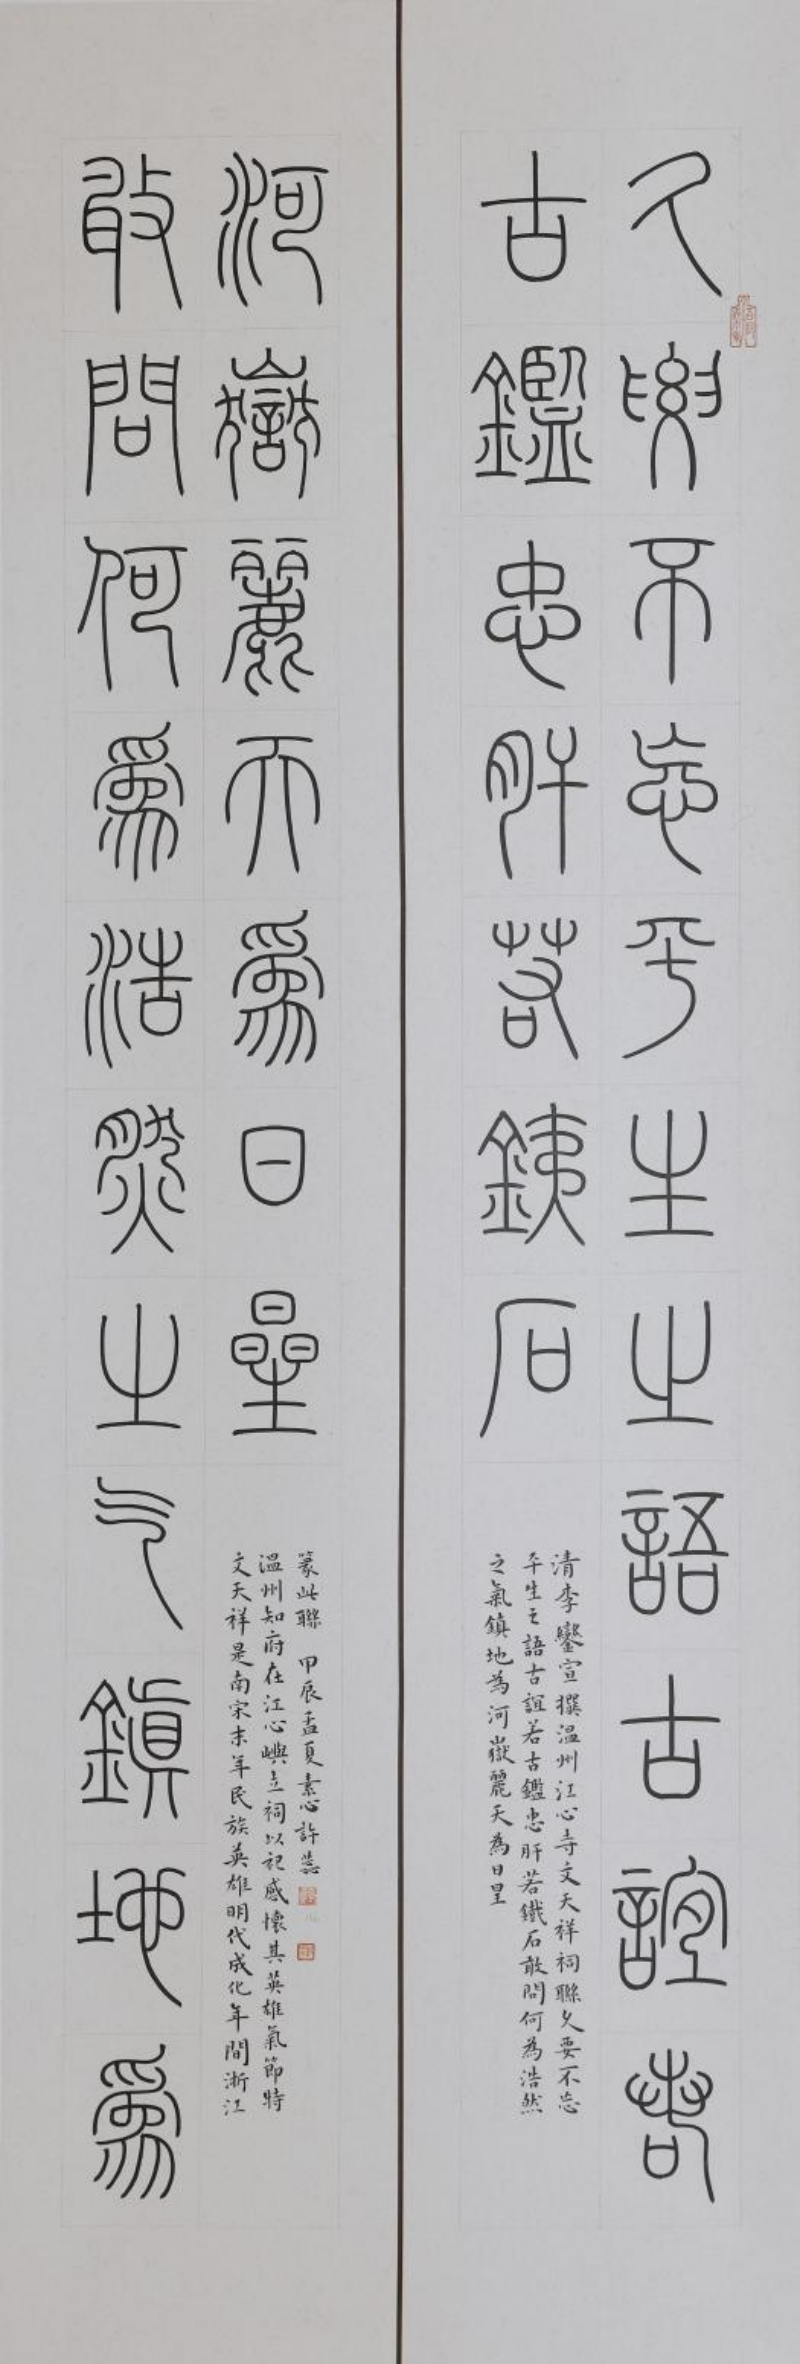 久要不忘平生之語古誼若
古鑑忠肝若銕石
清李鑾宣撰溫州江心寺文天祥祠聯久要不忘
平生之語古誼若古鑑忠肝若鐵石敢問何為浩然
之氣鎮地為河嶽麗天為日星
敢問何為浩然之气鎮地為
河嶽麗天為日星
文天祥是南宋末年民族英雄明代成化年間浙江
溫州知府在江心嶼立祠以記感懷其英雄氣節特
篆此聯 甲辰孟夏素心許蕊